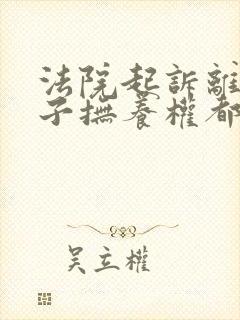 法院起訴離
子撫養權都
吴立權